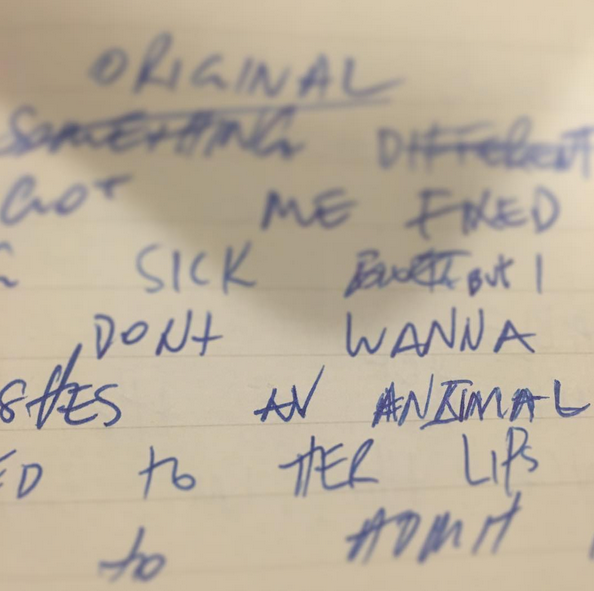 ORIGINAL
SOMETHING DIFFERENT
GOT ME FIXED
SICK BUT I
DONT WANNA
SHES AN ANIMAL
ED to HER LIPS
to ADMIT